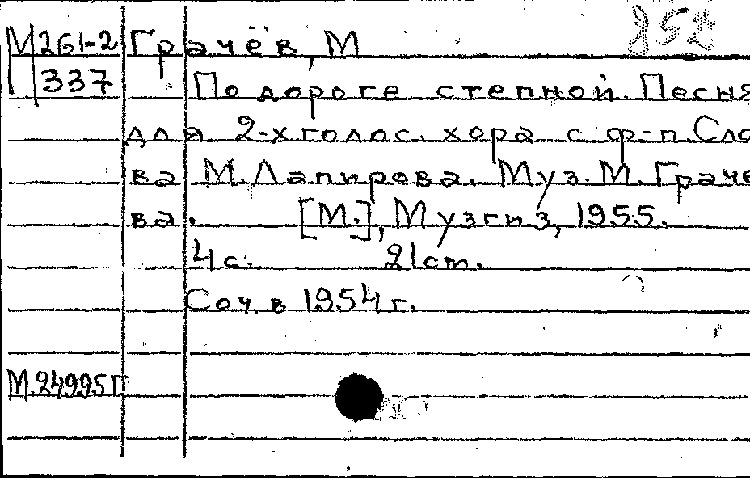 М261-2 Грачёв, М
337 По дороге степной. Песня
для 2-х голос. хора с ф-п. Сло
ва М. Лапирова. Муз. М. Граче
ва. [М.], Музгиз, 1955.
4 с. 21 cm.
Соч. в 1954 г.
М.24995П